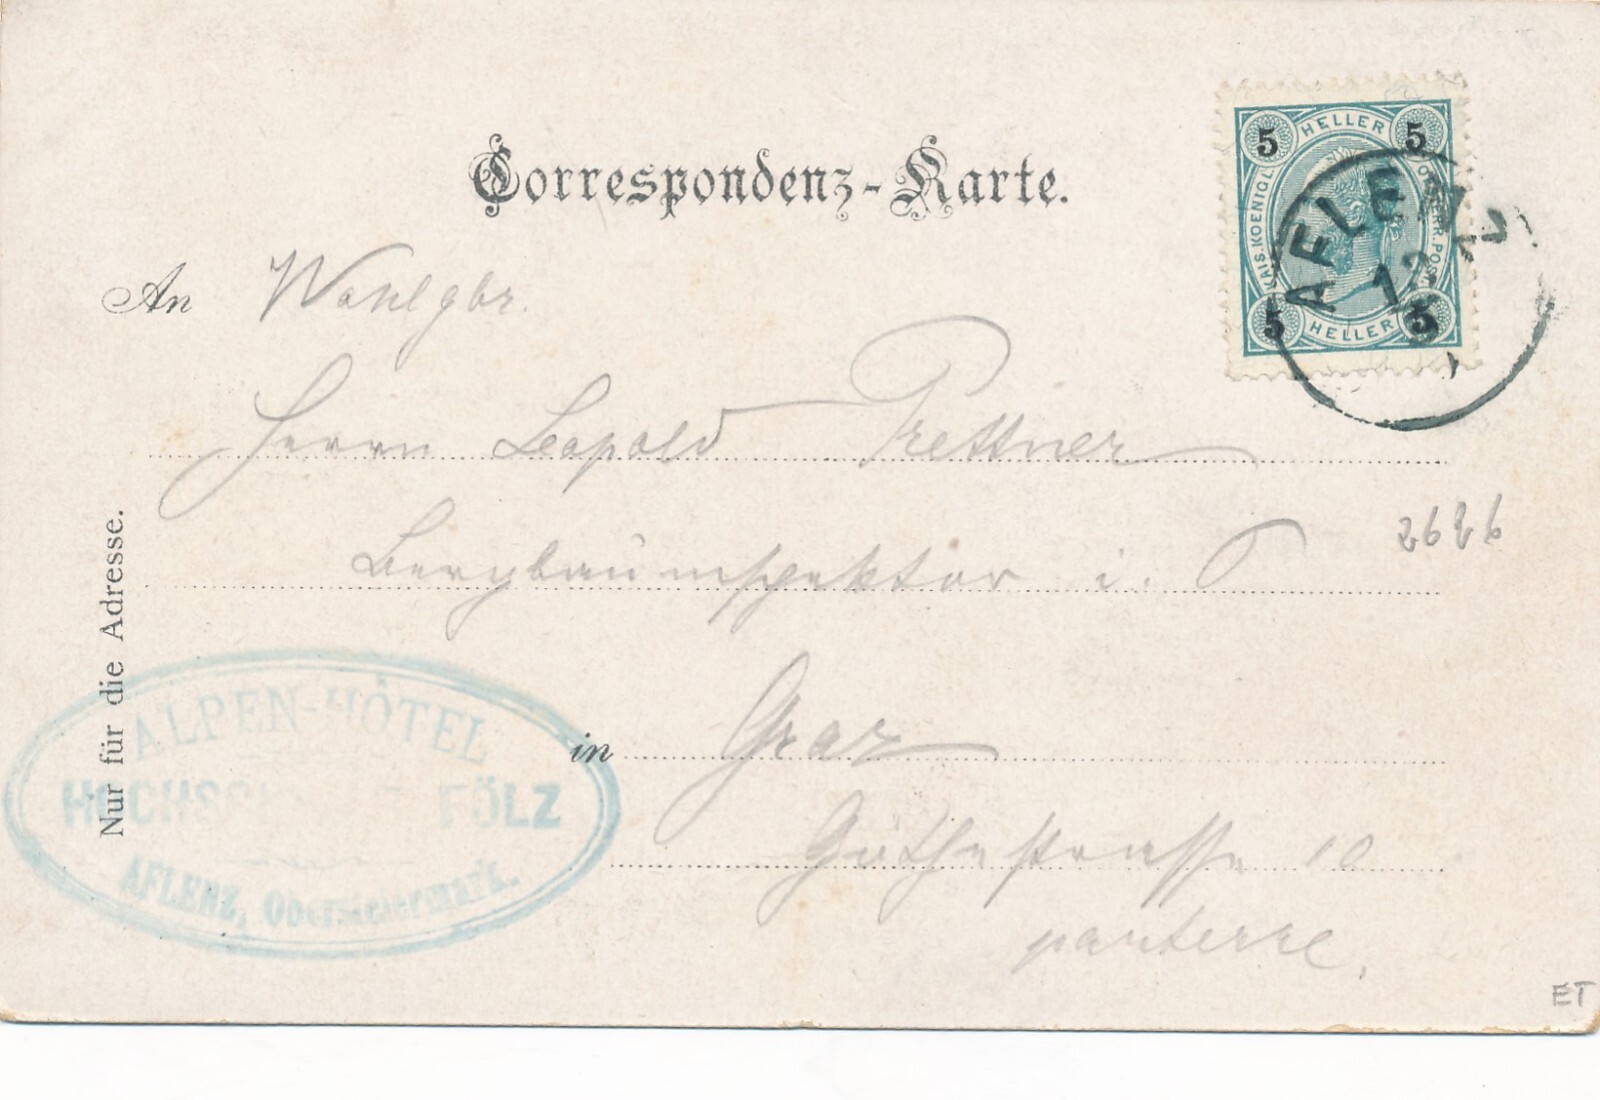 Correspondenz-Karte.
An Wohlgbr.
Herrn Leopold Prettner
Berginspektor i.
in Graz
Göthestrasse 10
parterre.
Nur für die Adresse.
5 HELLER 5
KAIS. KOENIGL. OESTERR. POST
5 HELLER 5
AFLENZ
12
2626
ALPEN-HÔTEL
FÖLZ
AFLENZ, Obersteiermark.
ET